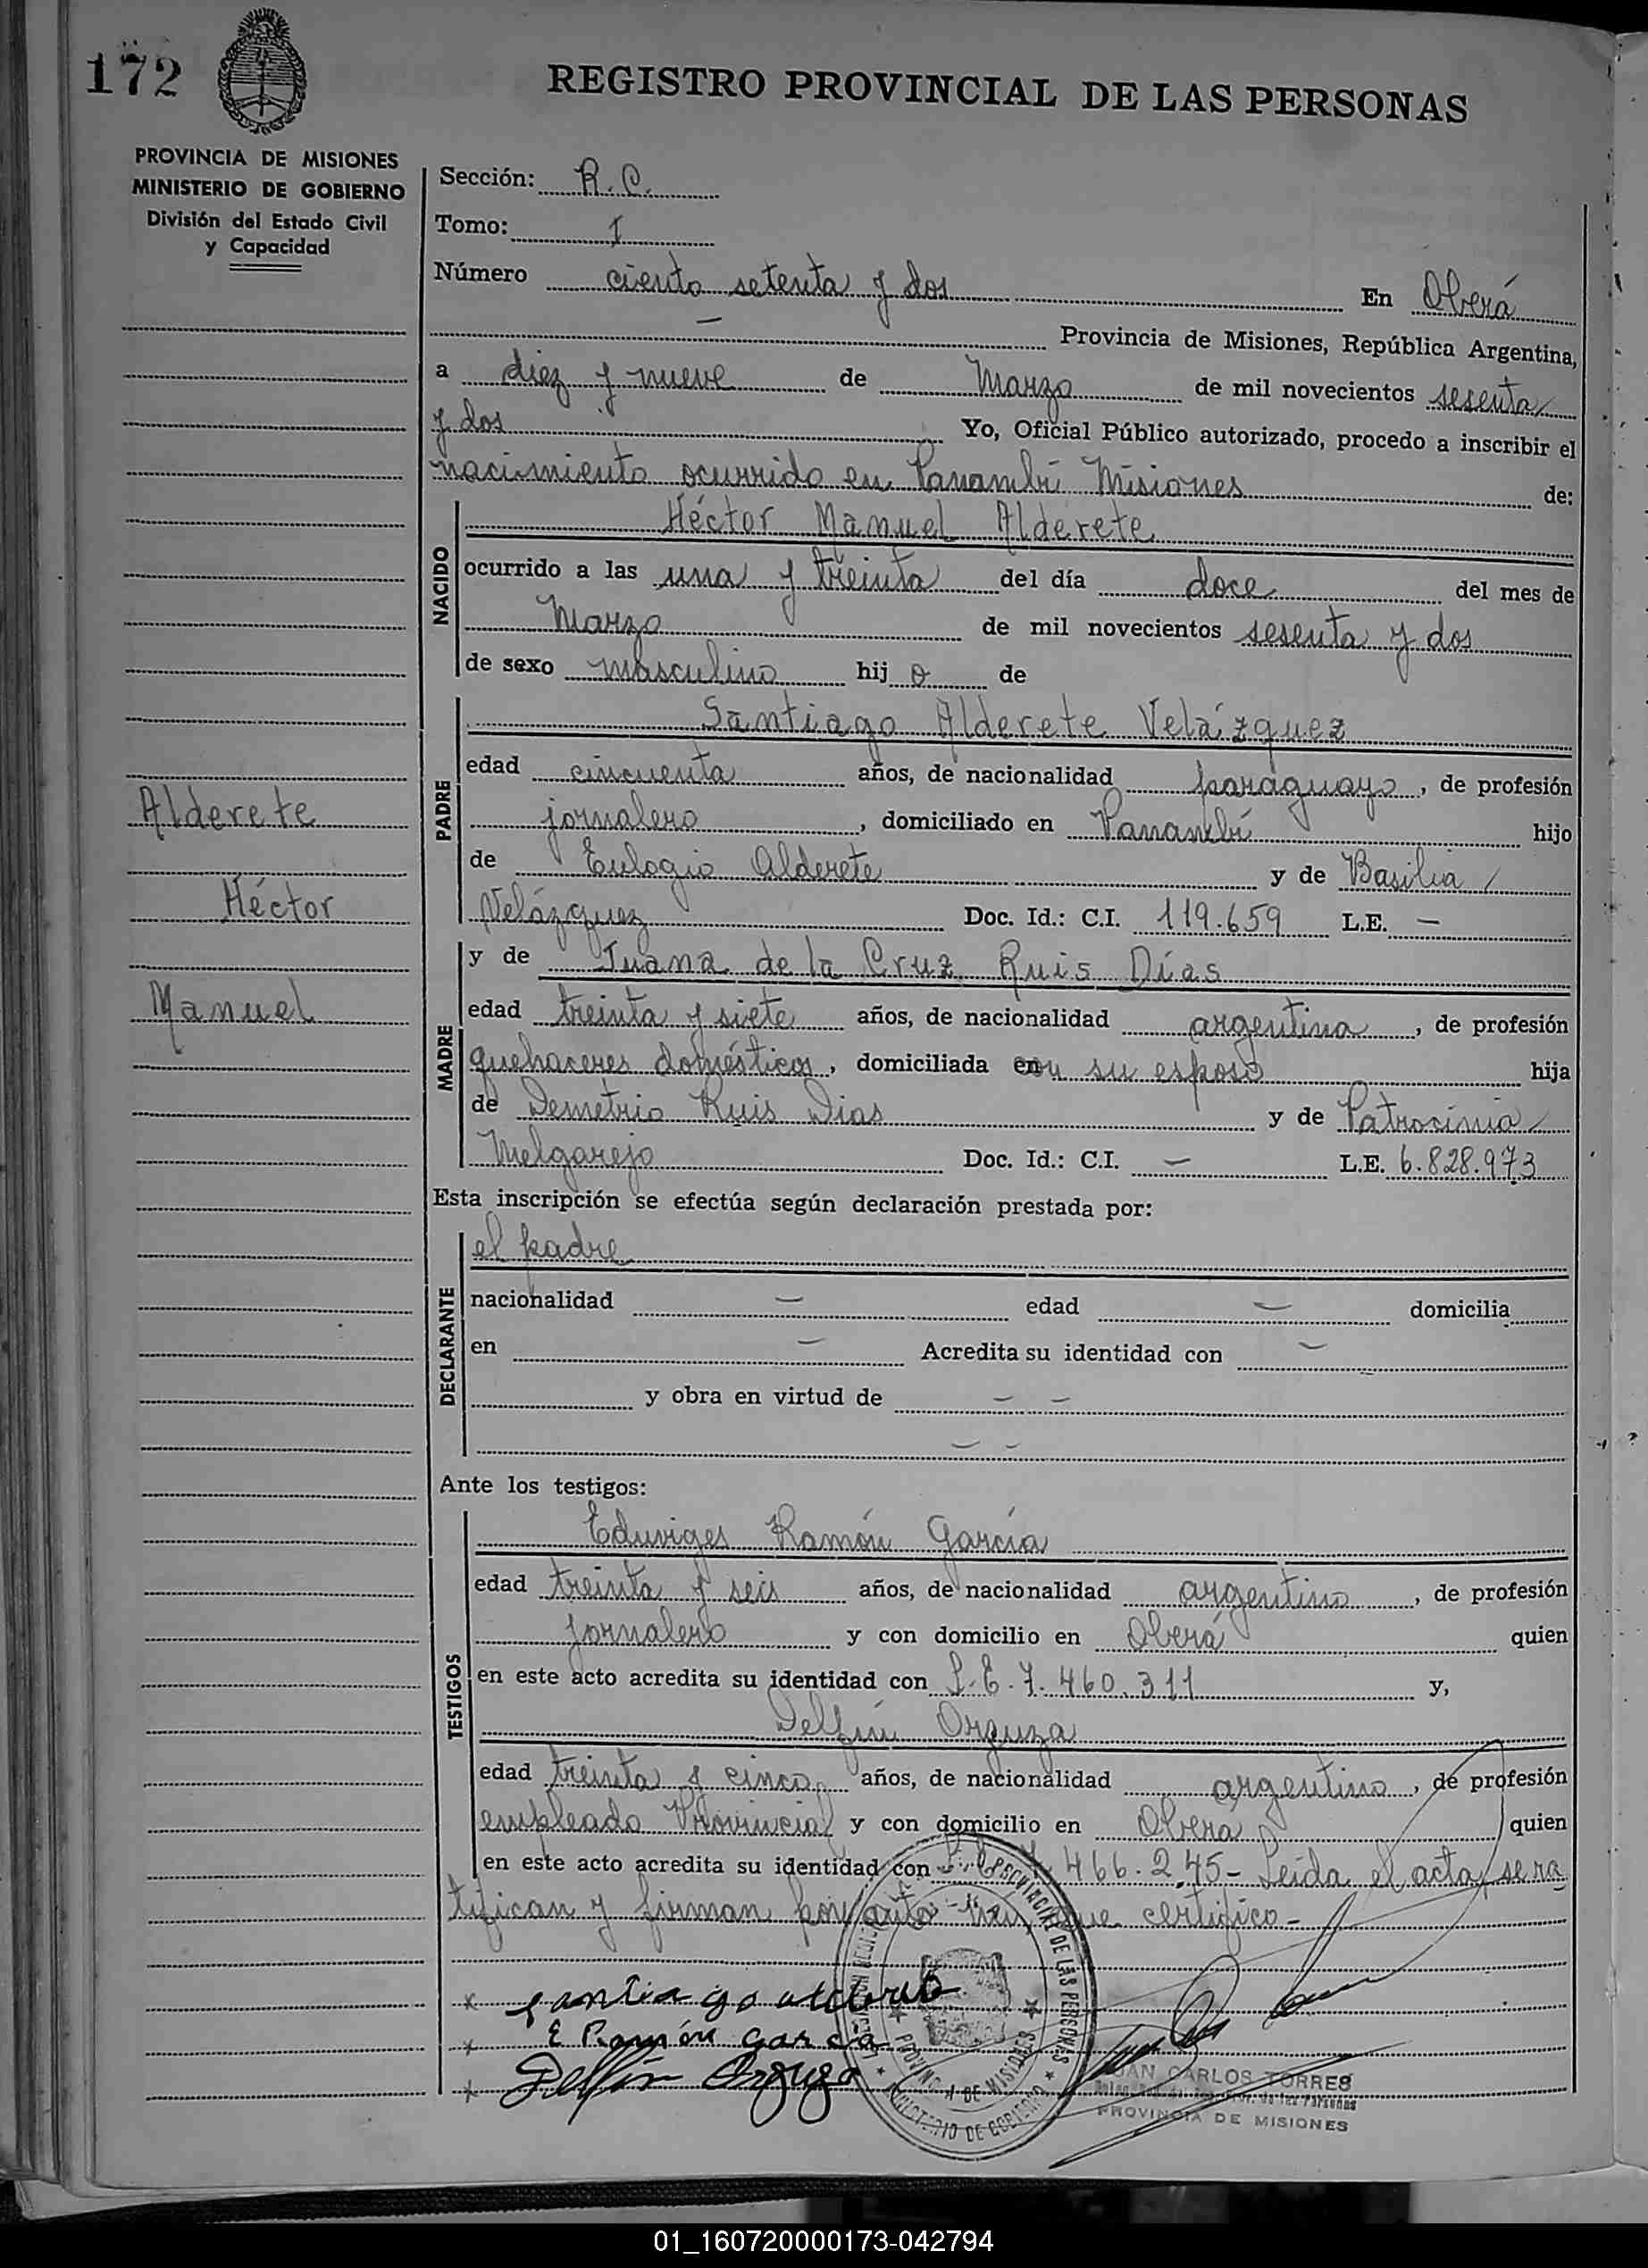 172
REGISTRO PROVINCIAL DE LAS PERSONAS
PROVINCIA DE MISIONES
MINISTERIO DE GOBIERNO
División del Estado Civil
y Capacidad
Alderete
Héctor
Manuel
Sección: R. C.
Tomo: I
Número ciento setenta y dos En Oberá
— Provincia de Misiones, República Argentina,
a diez y nueve de Marzo de mil novecientos sesenta
y dos Yo, Oficial Público autorizado, procedo a inscribir el
nacimiento ocurrido en Panambí Misiones de:
NACIDO
Héctor Manuel Alderete
ocurrido a las una y treinta del día doce del mes de
Marzo de mil novecientos sesenta y dos
de sexo masculino hij o de
PADRE
Santiago Alderete Velázquez
edad cincuenta años, de nacionalidad paraguayo, de profesión
jornalero, domiciliado en Panambí hijo
de Eulogio Alderete y de Basilia
Velázquez Doc. Id.: C.I. 119.659 L.E. —
MADRE
y de Juana de la Cruz Ruis Días
edad treinta y siete años, de nacionalidad argentina, de profesión
quehaceres domésticos, domiciliada en su esposo hija
de Demetrio Ruis Dias y de Patrocinia
Melgarejo Doc. Id.: C.I. — L.E. 6.828.973
Esta inscripción se efectúa según declaración prestada por:
DECLARANTE
el padre
nacionalidad — edad — domicilia
en — Acredita su identidad con —
y obra en virtud de — —
— —
Ante los testigos:
TESTIGOS
Eduviges Ramón García
edad treinta y seis años, de nacionalidad argentino, de profesión
jornalero y con domicilio en Oberá quien
en este acto acredita su identidad con L.E. 7.460.311 y,
Delfín Orguza
edad treinta y cinco años, de nacionalidad argentino, de profesión
empleado Provincial y con domicilio en Oberá quien
en este acto acredita su identidad con 466.245- Leída el acta, se ra
tifican y firman por ante que certifico-
Santiago alderete
E Ramón García
Delfín Orguza
PROVINCIAL DE LAS PERSONAS
PROVINCIA DE MISIONES
MINISTERIO DE GOBIERNO
JUAN CARLOS TORRES
de las Personas
PROVINCIA DE MISIONES
01_160720000173-042794